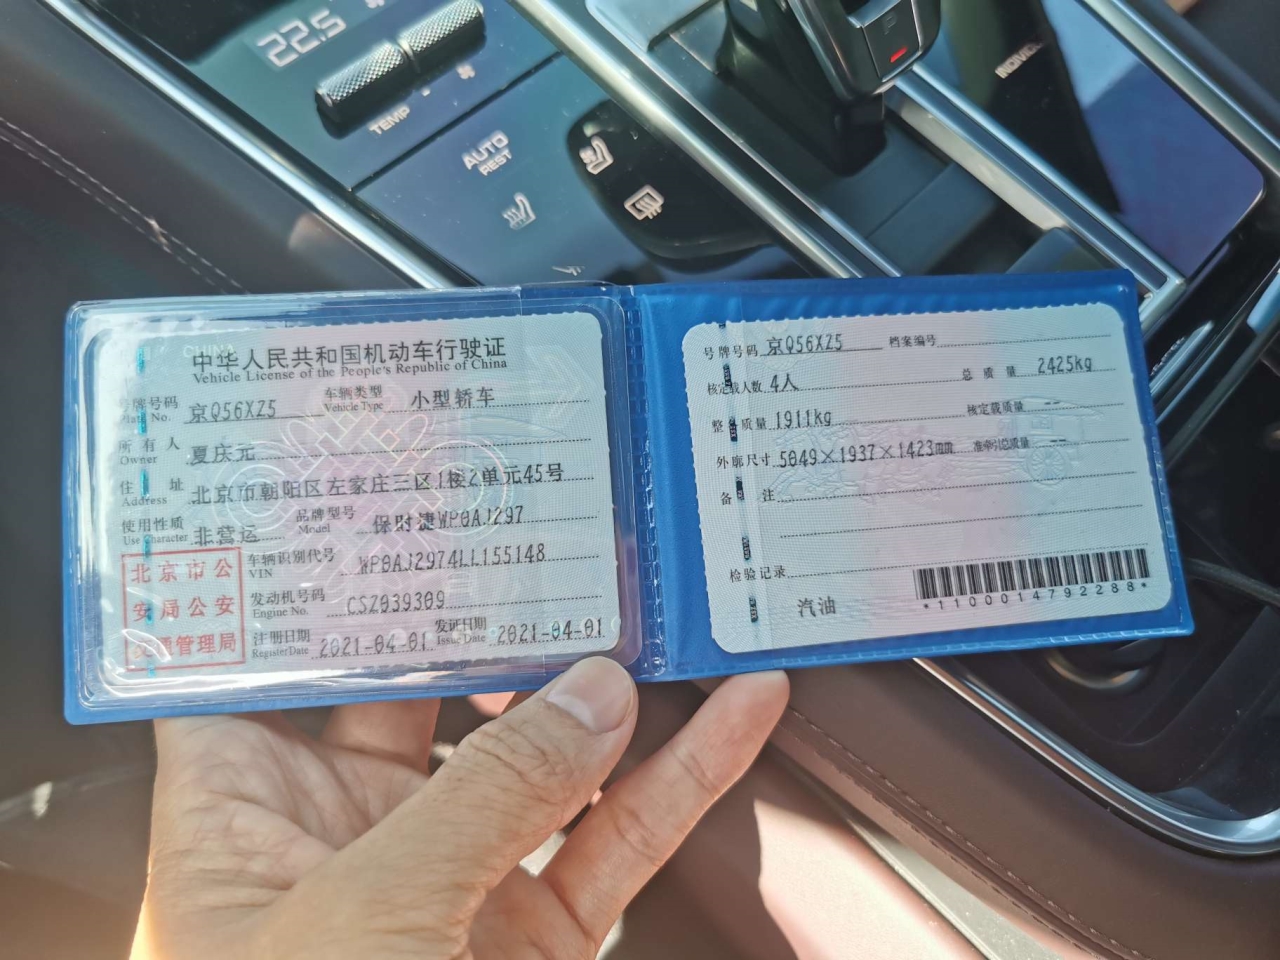 22.5
TEMP
AUTO
REST
INDIVID
中华人民共和国机动车行驶证
Vehicle License of the People's Republic of China
号牌号码 京Q56XZ5 车辆类型 小型轿车
Plate No. Vehicle Type
所有人 夏庆元
Owner
住址 北京市朝阳区左家庄三区1楼2单元45号
Address
使用性质 非营运 品牌型号 保时捷WP0AJ297
Use Character Model
北京市公
安局公安
交通管理局
车辆识别代号 WP0AJ2974LL155148
VIN
发动机号码 CSZ039309
Engine No.
注册日期 2021-04-01 发证日期 2021-04-01
Register Date Issue Date
号牌号码 京Q56XZ5 档案编号
核定载人数 4人 总质量 2425kg
整备质量 1911kg 核定载质量 --
外廓尺寸 5049×1937×1423mm 准牵引总质量 --
备注
检验记录
汽油
*1100014792288*